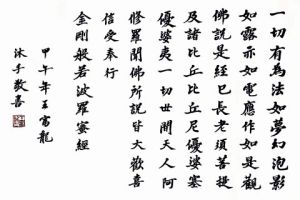 一切有為法如夢幻泡影
如露亦如電應作如是觀
佛說是經已長老須菩提
及諸比丘比丘尼優婆塞
優婆夷一切世間天人阿
修羅聞佛所說皆大歡喜
信受奉行
金剛般若波羅蜜經
甲午年王富龍
沐手敬書